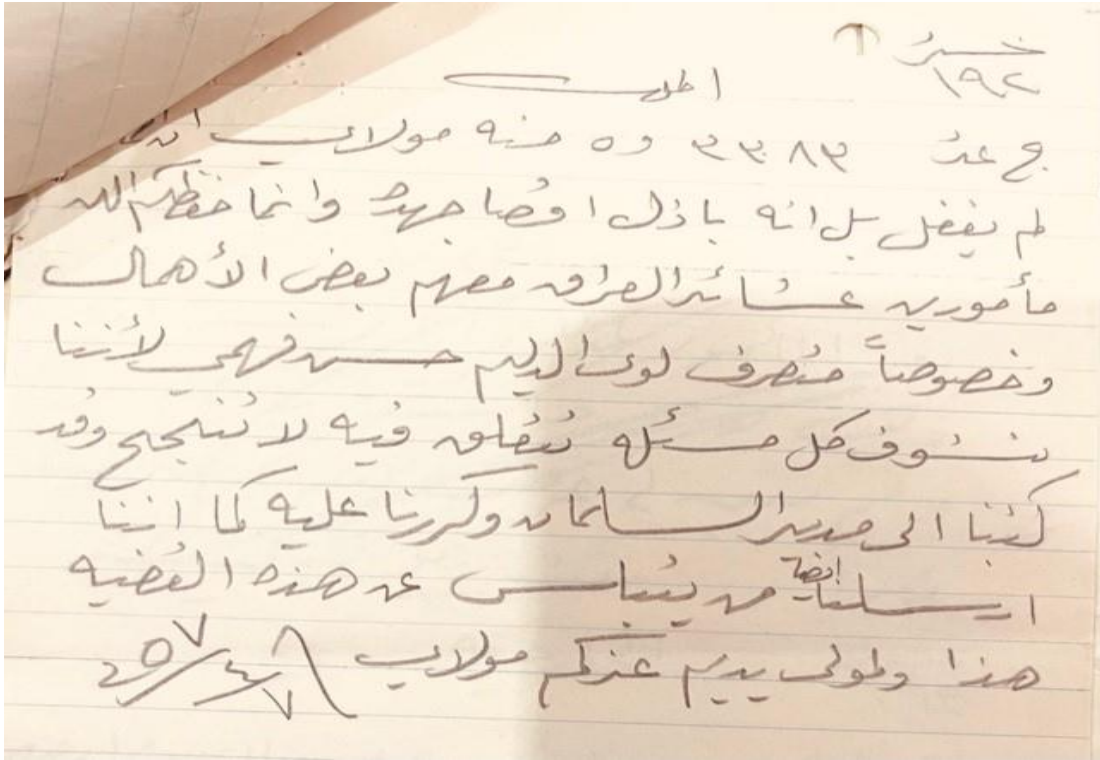 ١٩٢
ج عدد ٣٣٨٣ و٥ منه مولاي
لم يغفل بل انه باذل اقصا جهده وانما حفظكم الله
مأمورين عشائر العراق معهم بعض الأهمال
وخصوصاً متصرف لوى الدليم حسن فهمي لأننا
نشوف كل مسئله تتعلق فيه لا تنتجح وقد
كتبنا الى مدير السلمان وكررنا عليه كما اننا
ارسلنا ايضا من يتباسس عن هذه القضيه
هذا والمولى يديم عزكم مولاي